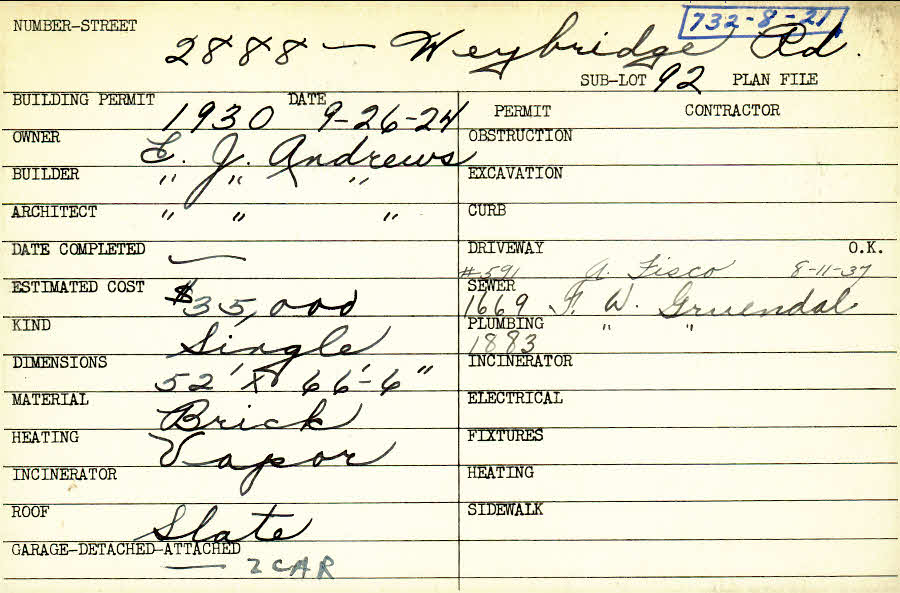 732-8-21
NUMBER-STREET
2888 — Weybridge Rd.
SUB-LOT 92 PLAN FILE
BUILDING PERMIT 1930 DATE 9-26-24
PERMIT CONTRACTOR
OWNER E. J. Andrews
OBSTRUCTION
BUILDER " " "
EXCAVATION
ARCHITECT " " "
CURB
DATE COMPLETED —
DRIVEWAY O.K.
#591 A. Fisco 8-11-37
ESTIMATED COST $35,000
SEWER
1669 F. W. Gruendal
KIND Single
PLUMBING " "
1883
DIMENSIONS 52' X 66'-6"
INCINERATOR
MATERIAL Brick
ELECTRICAL
HEATING Vapor
FIXTURES
INCINERATOR
HEATING
ROOF Slate
SIDEWALK
GARAGE-DETACHED-ATTACHED
— 2 CAR